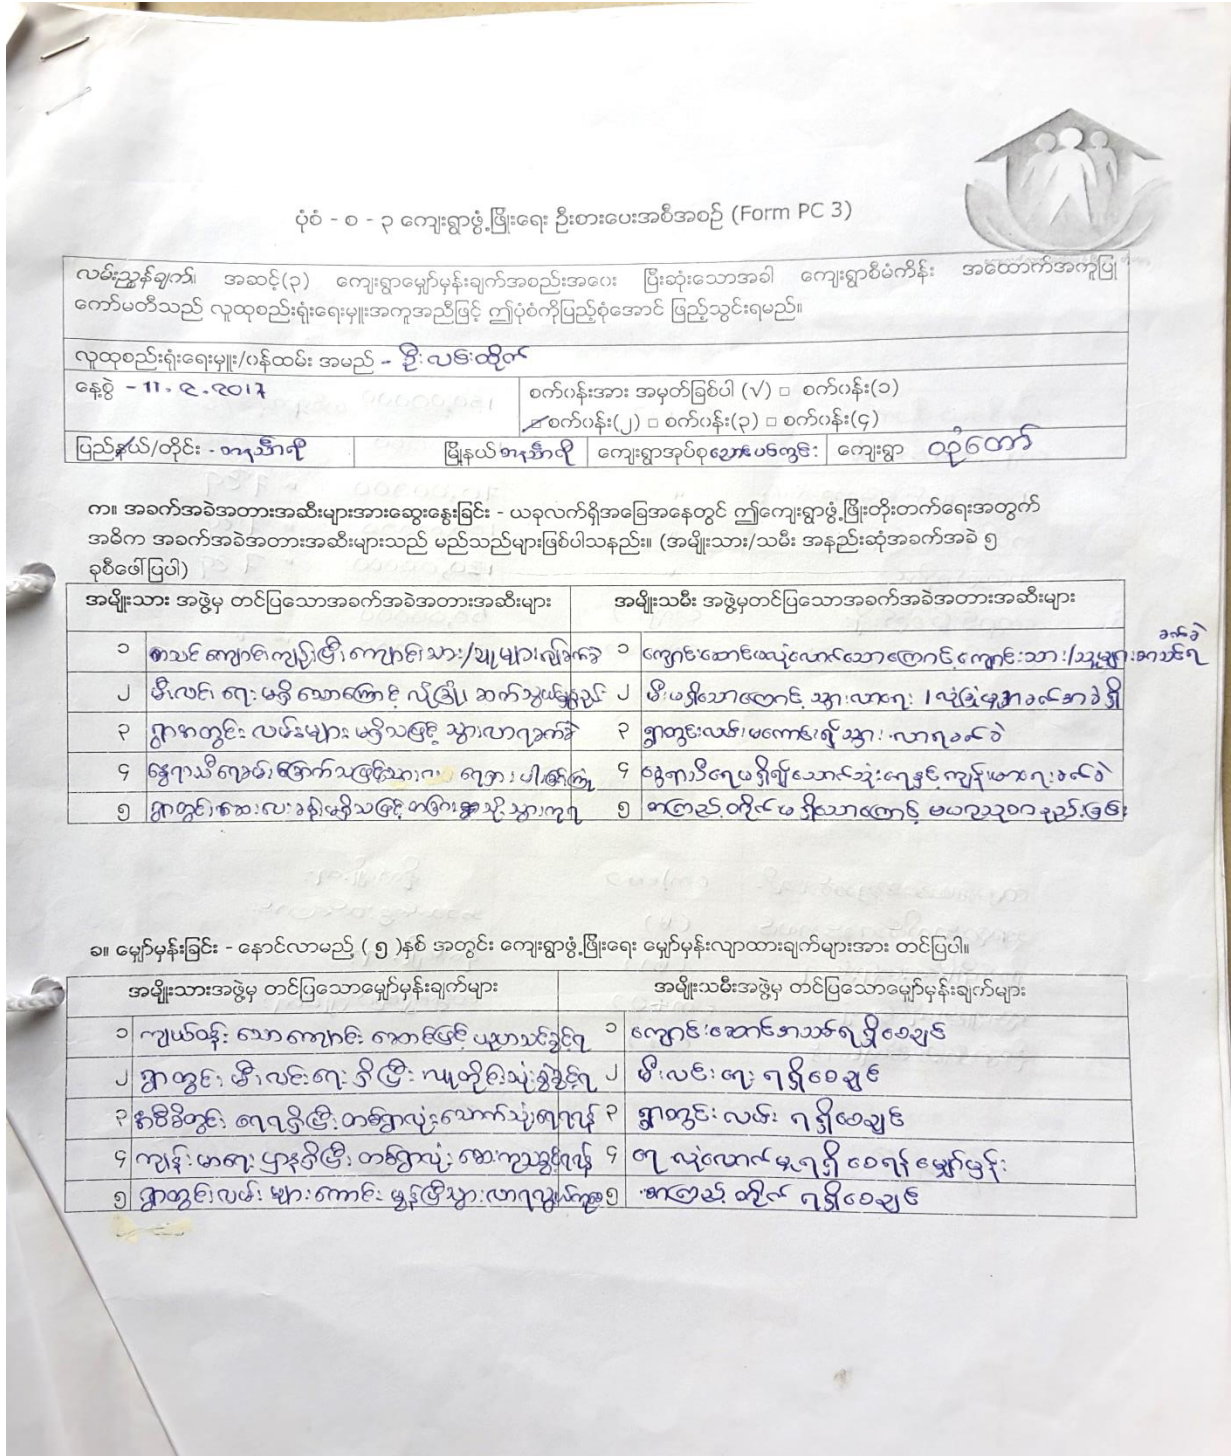 ပုံစံ - စ - ၃ ကျေးရွာဖွံ့ဖြိုးရေး ဦးစားပေးအစီအစဉ် (Form PC 3)
လမ်းညွှန်ချက်။ အဆင့်(၃) ကျေးရွာမျှော်မှန်းချက်အစည်းအဝေး ပြီးဆုံးသောအခါ ကျေးရွာစီမံကိန်း အထောက်အကူပြု
ကော်မတီသည် လူထုစည်းရုံးရေးမှူးအကူအညီဖြင့် ဤပုံစံကိုပြည့်စုံအောင် ဖြည့်သွင်းရမည်။
လူထုစည်းရုံးရေးမှူး/ဝန်ထမ်း အမည် - ဦးလမ်းထိုက်
နေ့စွဲ - 11.2.2017
စက်ဝန်းအား အမှတ်ခြစ်ပါ (√) □ စက်ဝန်း(၁)
☑ စက်ဝန်း(၂) □ စက်ဝန်း(၃) □ စက်ဝန်း(၄)
ပြည်နယ်/တိုင်း - တနင်္သာရီ မြို့နယ် တနင်္သာရီ ကျေးရွာအုပ်စု ညောင်ပင်ကွင်း ကျေးရွာ
က။ အခက်အခဲအတားအဆီးများအားဆွေးနွေးခြင်း - ယခုလက်ရှိအခြေအနေတွင် ဤကျေးရွာဖွံ့ဖြိုးတိုးတက်ရေးအတွက်
အဓိက အခက်အခဲအတားအဆီးများသည် မည်သည်များဖြစ်ပါသနည်း။ (အမျိုးသား/သမီး အနည်းဆုံးအခက်အခဲ ၅
ခုစီဖေါ်ပြပါ)
အမျိုးသား အဖွဲ့မှ တင်ပြသောအခက်အခဲအတားအဆီးများ အမျိုးသမီး အဖွဲ့မှတင်ပြသောအခက်အခဲအတားအဆီးများ
၁ စာသင်ကျောင်းကျဉ်းပြီး ကျောင်းသား/သူများ
၁ ကျောင်းဆောင်မလုံလောက်သောကြောင့် ကျောင်းသား/သူများစာသင်ရ
ခက်ခဲ
၂ မီးလင်းရေးမရှိသောကြောင့် လုံခြုံ ဆက်သွယ်မှု
၂ မီးမရှိသောကြောင့် သွားလာရေး / လုံခြုံမှုအခက်အခဲရှိ
၃ ရွာအတွင်း လမ်းများ မရှိသဖြင့် သွားလာရခက်ခဲ
၃ ရွာတွင်းလမ်းမကောင်း၍ သွားလာရခက်ခဲ
၄ နွေရာသီရေခမ်းခြောက်သဖြင့်
၄ နွေရာသီရေမရှိ၍ သောက်သုံးရေနှင့် ကျန်းမာရေးခက်ခဲ
၅ ရွာတွင်းဆေးပေးခန်းမရှိသဖြင့် တခြားရွာသို့ သွားကုရ
၅ စာကြည့်တိုက်မရှိသောကြောင့်
ခ။ မျှော်မှန်းခြင်း - နောင်လာမည့် (၅)နှစ် အတွင်း ကျေးရွာဖွံ့ဖြိုးရေး မျှော်မှန်းလျာထားချက်များအား တင်ပြပါ။
အမျိုးသားအဖွဲ့မှ တင်ပြသောမျှော်မှန်းချက်များ အမျိုးသမီးအဖွဲ့မှ တင်ပြသောမျှော်မှန်းချက်များ
၁ ကျယ်ဝန်းသောကျောင်း ပညာသင်ခွင့်ရ
၁ ကျောင်းဆောင်အသစ်ရရှိစေချင်
၂ ရွာတွင်း မီးလင်းရေးရှိပြီး လူတိုင်းသုံးစွဲခွင့်ရ
၂ မီးလင်းရေး ရရှိစေချင်
၃ အဝီစိတွင်း ရေရရှိပြီး တစ်ရွာလုံး သောက်သုံးရေရရန်
၃ ရွာတွင်းလမ်း ရရှိစေချင်
၄ ကျန်းမာရေးဌာနရှိပြီး တစ်ရွာလုံး ဆေးကုသခွင့်ရရန်
၄ ရေ လုံလောက်မှုရရှိစေရန်မျှော်မှန်း
၅ ရွာတွင်းလမ်းများကောင်းမွန်ပြီး သွားလာရ
၅ စာကြည့်တိုက် ရရှိစေချင်